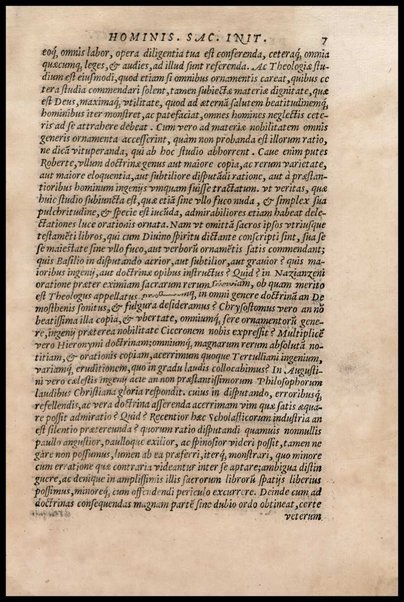 HOMINIS. SAC. INIT. 7
eoq́, omnis labor, opera diligentia tua est conferenda, ceteraq́, omnia
quæcumq́, leges, & audies, ad illud sunt referenda. Ac Theologiæ stu
dium est eiusmodi, quod etiam si omnibus ornamentis careat, quibus ce
tera studia commendari solent, tamen subiectæ materiæ dignitate, quæ
est Deus, maximaq́, vtilitate, quod ad æternã salutem beatitudinemq́,
hominibus iter monstret, ac patefaciat, omnes homines neglectis cete-
ris ad se attrahere debeat. Cum vero ad materiæ nobilitatem omnis
generis ornamenta accesserint, quàm non probanda est illorum ratio,
ne dicã vituperanda, qui ab hoc studio abhorrent. Caue enim putes
Roberte, vllum doctrinæ genus aut maiore copia, ac rerum varietate,
aut maiore eloquentia, aut subtiliore disputãdi ratione, aut à præstan-
tioribus hominum ingenijs vmquam fuisse tractatum. vt veritas, quæ
huic studio subiuncta est, quæ etiã sine vllo fuco nuda, & simplex sua
pulchritudine, & specie est iucũda, admirabiliores etiam habeat dele-
ctationes luce orationis ornata. Nam vt omittã sacros ipsos vtriusque
testamẽti libros, qui cum Diuino spiritu dictante conscripti sint, sua se
se maiestate sine vllo fuco, aut verborũ ornamẽtis satis commendant;
quis Basilio in disputãdo acrior, aut subtilior, aut grauior? quis ma-
ioribus ingenij, aut doctrinæ opibus instructus? Quid? in Nazianzeni
oratione præter eximiam sacrarum rerum ob quam merito
est Theologus appellatus in omni genere doctrinã an De
mosthenis sonitus, & fulgura desideramus? Chrysostomus vero an nõ
beatissima illa copia, & vbertate, omniumq́, fere ornamentorũ gene-
re, ingenij præterea nobilitate Ciceronem nobis expressit? Multiplicẽ
vero Hieronymi doctrinam; omniumq́, magnarum rerum absolutã no-
titiam, & orationis copiam, acerrimum quoque Tertulliani ingenium,
variamq́, eruditionem, quo in gradu laudis collocabimus? In Augusti-
ni vero cælestis ingenij acie an non præstantissimorum Philosophorum
laudibus Christiana gloria respondit. cuius in disputando, erroribusq́,
refellendis, ac vera doctrina asserenda acerrimam vim quæ satis æqua-
re possit admiratio? Quid? Recentior hæc Scholasticorum industria an
est silentio prætereunda? quorum ratio disputandi quamuis nonnullis
paullo angustior, paulloque exilior, ac spinosior videri possit, tamen ne
gare non possumus, lumen ab ea præferri, iterq́, monstrari, quo minore
cum erratione quæ contraria videantur inter se aptare; ambigua distin
guere, ac denique in amplissimis illis sacrorum librorũ spatijs liberius
possimus, minoreq́, cum offendendi periculo excurrere. Deinde cum ad
doctrinas consequendas magnam partẽ sine dubio ordo obtineat, certe
veterum